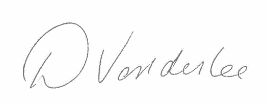 D Vanderlee